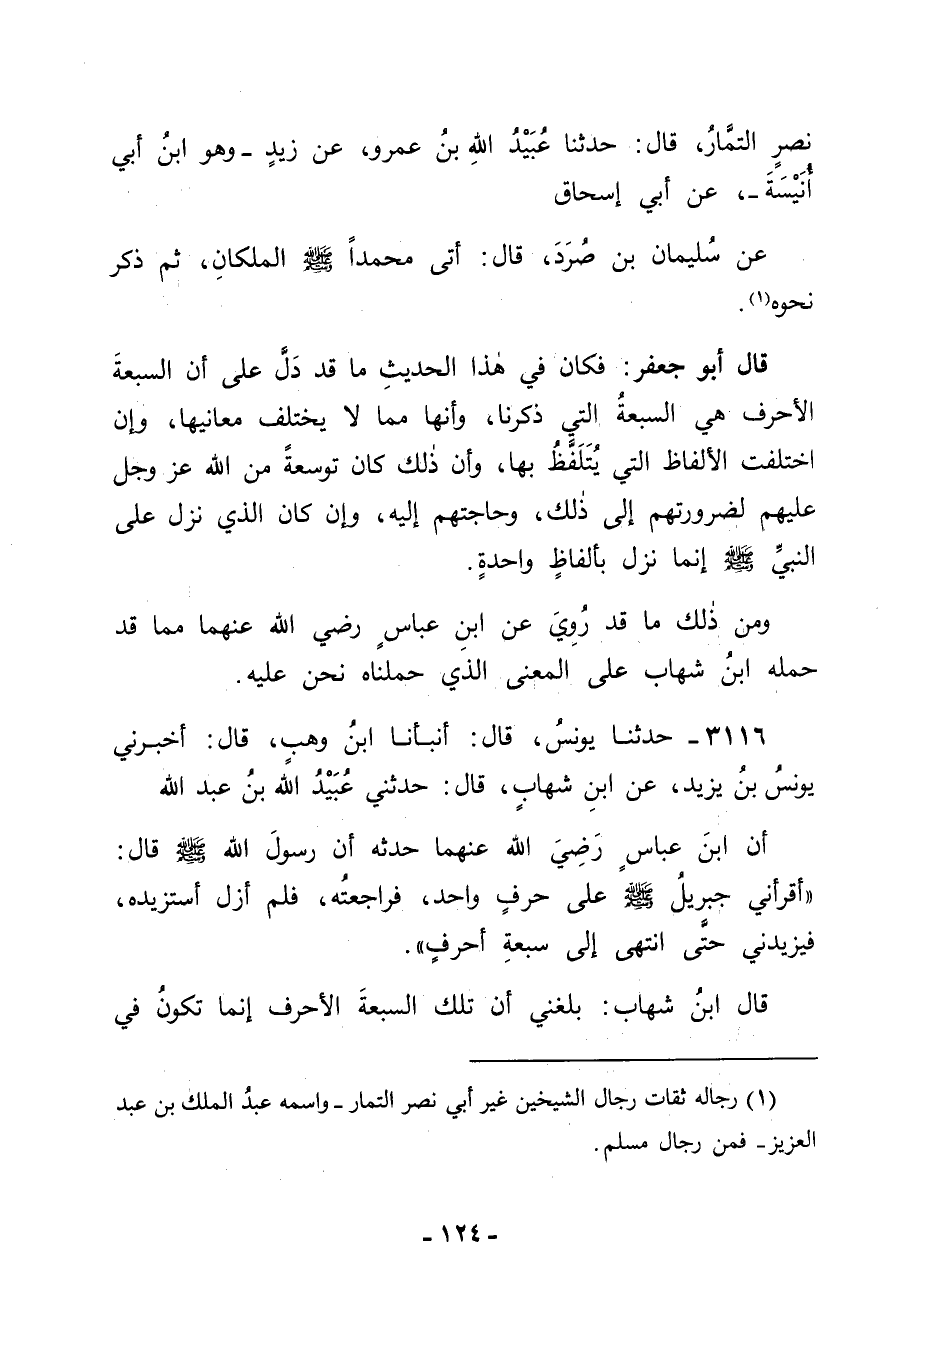 نصرٍ التمَّارُ، قال: حدثنا عُبَيْدُ اللهِ بنُ عمرو، عن زيدٍ ـ وهو ابنُ أبي
أُنَيْسَةَ ـ، عن أبي إسحاق
عن سُليمان بن صُرَدَ، قال: أتى محمداً ﷺ الملكانِ، ثم ذكر
نحوه(١).
قال أبو جعفر: فكان في هٰذا الحديثِ ما قد دَلَّ على أن السبعةَ
الأحرف هي السبعةُ التي ذكرنا، وأنها مما لا يختلف معانيها، وإن
اختلفت الألفاظ التي يُتَلَفَّظُ بها، وأن ذٰلك كان توسعةً من الله عز وجل
عليهم لضرورتهم إلى ذٰلك، وحاجتهم إليه، وإن كان الذي نزل على
النبيِّ ﷺ إنما نزل بألفاظٍ واحدةٍ.
ومن ذٰلك ما قد رُوِيَ عن ابنِ عباسٍ رضي الله عنهما مما قد
حمله ابنُ شهاب على المعنى الذي حملناه نحن عليه.
٣١١٦ـ حدثنـا يونسُ، قال: أنبـأنـا ابنُ وهبٍ، قال: أخبـرني
يونسُ بنُ يزيد، عن ابنِ شهابٍ، قال: حدثني عُبَيْدُ الله بنُ عبد الله
أن ابنَ عباسٍ رَضِيَ الله عنهما حدثه أن رسولَ الله ﷺ قال:
«أقرأني جبريلُ ﷺ على حرفٍ واحد، فراجعتُه، فلم أزل أستزيده،
فيزيدني حتَّى انتهى إلى سبعةِ أحرفٍ».
قال ابنُ شهاب: بلغني أن تلك السبعةَ الأحرف إنما تكونُ في
(١) رجاله ثقات رجال الشيخين غير أبي نصر التمار ـ واسمه عبدُ الملك بن عبد
العزيز ـ فمن رجال مسلم.
ـ ١٢٤ ـ